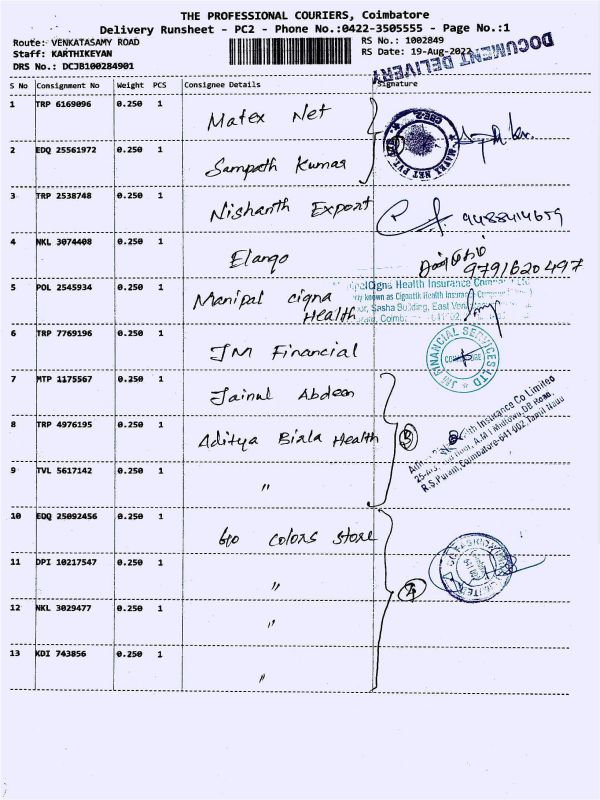 THE PROFESSIONAL COURIERS, Coimbatore
Delivery Runsheet - PC2 - Phone No.:0422-3505555 - Page No.:1
Route: VENKATASAMY ROAD
Staff: KARTHIKEYAN
DRS No.: DCJB100284901
RS No.: 1002849
RS Date: 19-Aug-2022
DOCUMENT DELIVERY
S No Consignment No Weight PCS Consignee Details Signature
1 TRP 6169096 0.250 1 Matex Net
2 EDQ 25561972 0.250 1 Sampath Kumar
MATEX NET PVT.
3 TRP 2538748 0.250 1 Nishanth Export 9488414659
4 NKL 3074408 0.250 1 Elango
9791620497
5 POL 2545934 0.250 1 Manipal cigna Health
Cigna Health Insurance
known as Cignattk Health Insurance
Sasha Building, East
6 TRP 7769196 0.250 1 JM Financial
JM FINANCIAL SERVICES LTD
7 MTP 1175567 0.250 1 Jainul Abdeen
8 TRP 4976195 0.250 1 Aditya Biala Health
Health Insurance Co Limited
Floor, A.M.I Midtown, DB Road,
R.S.Puram, Coimbatore-641 002. Tamil Nadu
9 TVL 5617142 0.250 1 "
10 EDQ 25092456 0.250 1 Go Colors Store
11 DPI 10217547 0.250 1 "
FASHION
12 NKL 3029477 0.250 1 "
13 KDI 743856 0.250 1 "